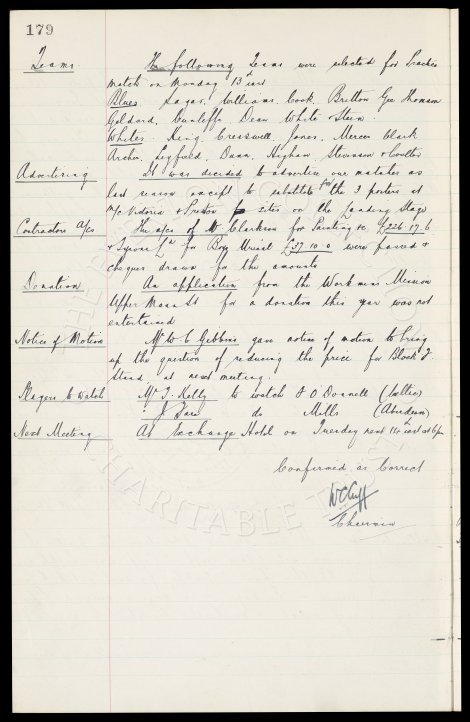 179
Teams The following Teams were selected for Practice
match on Monday 13th inst
Blues Sagar, Williams, Cock, Britton Gee Thomson
Geldard, Cunliffe Dean White & Stein.
Whites King Cresswell Jones, Mercer Clark
Archer, Leyfield, Dunn, Higham, Stevenson & Coulter
Advertising It was decided to advertise our matches as
last season except to substitute for the 3 posters at
M/c Victoria & Preston sites on the Landing Stage
Contractors a/cs The a/cs of Mr Clarkson for Painting &c £226.17.6
& Tysons Ld for Boys Urinal £37.10.0 were passed &
cheques drawn for the amounts
Donation An application from the Workmens Mission
Upper Mann St for a donation this year was not
entertained
Notice of Motion Mr W C Gibbins gave notice of motion to bring
up the question of reducing the price for Block J.
Stand, at next meeting.
Players to Watch Mr T. Kelly to watch F O'Donnell (Celtic)
do Mills (Aberdeen)
Next Meeting At Exchange Hotel on Tuesday next 14th inst at 6pm
Confirmed as Correct
WC Cuff
Chairman
CHARITABLE